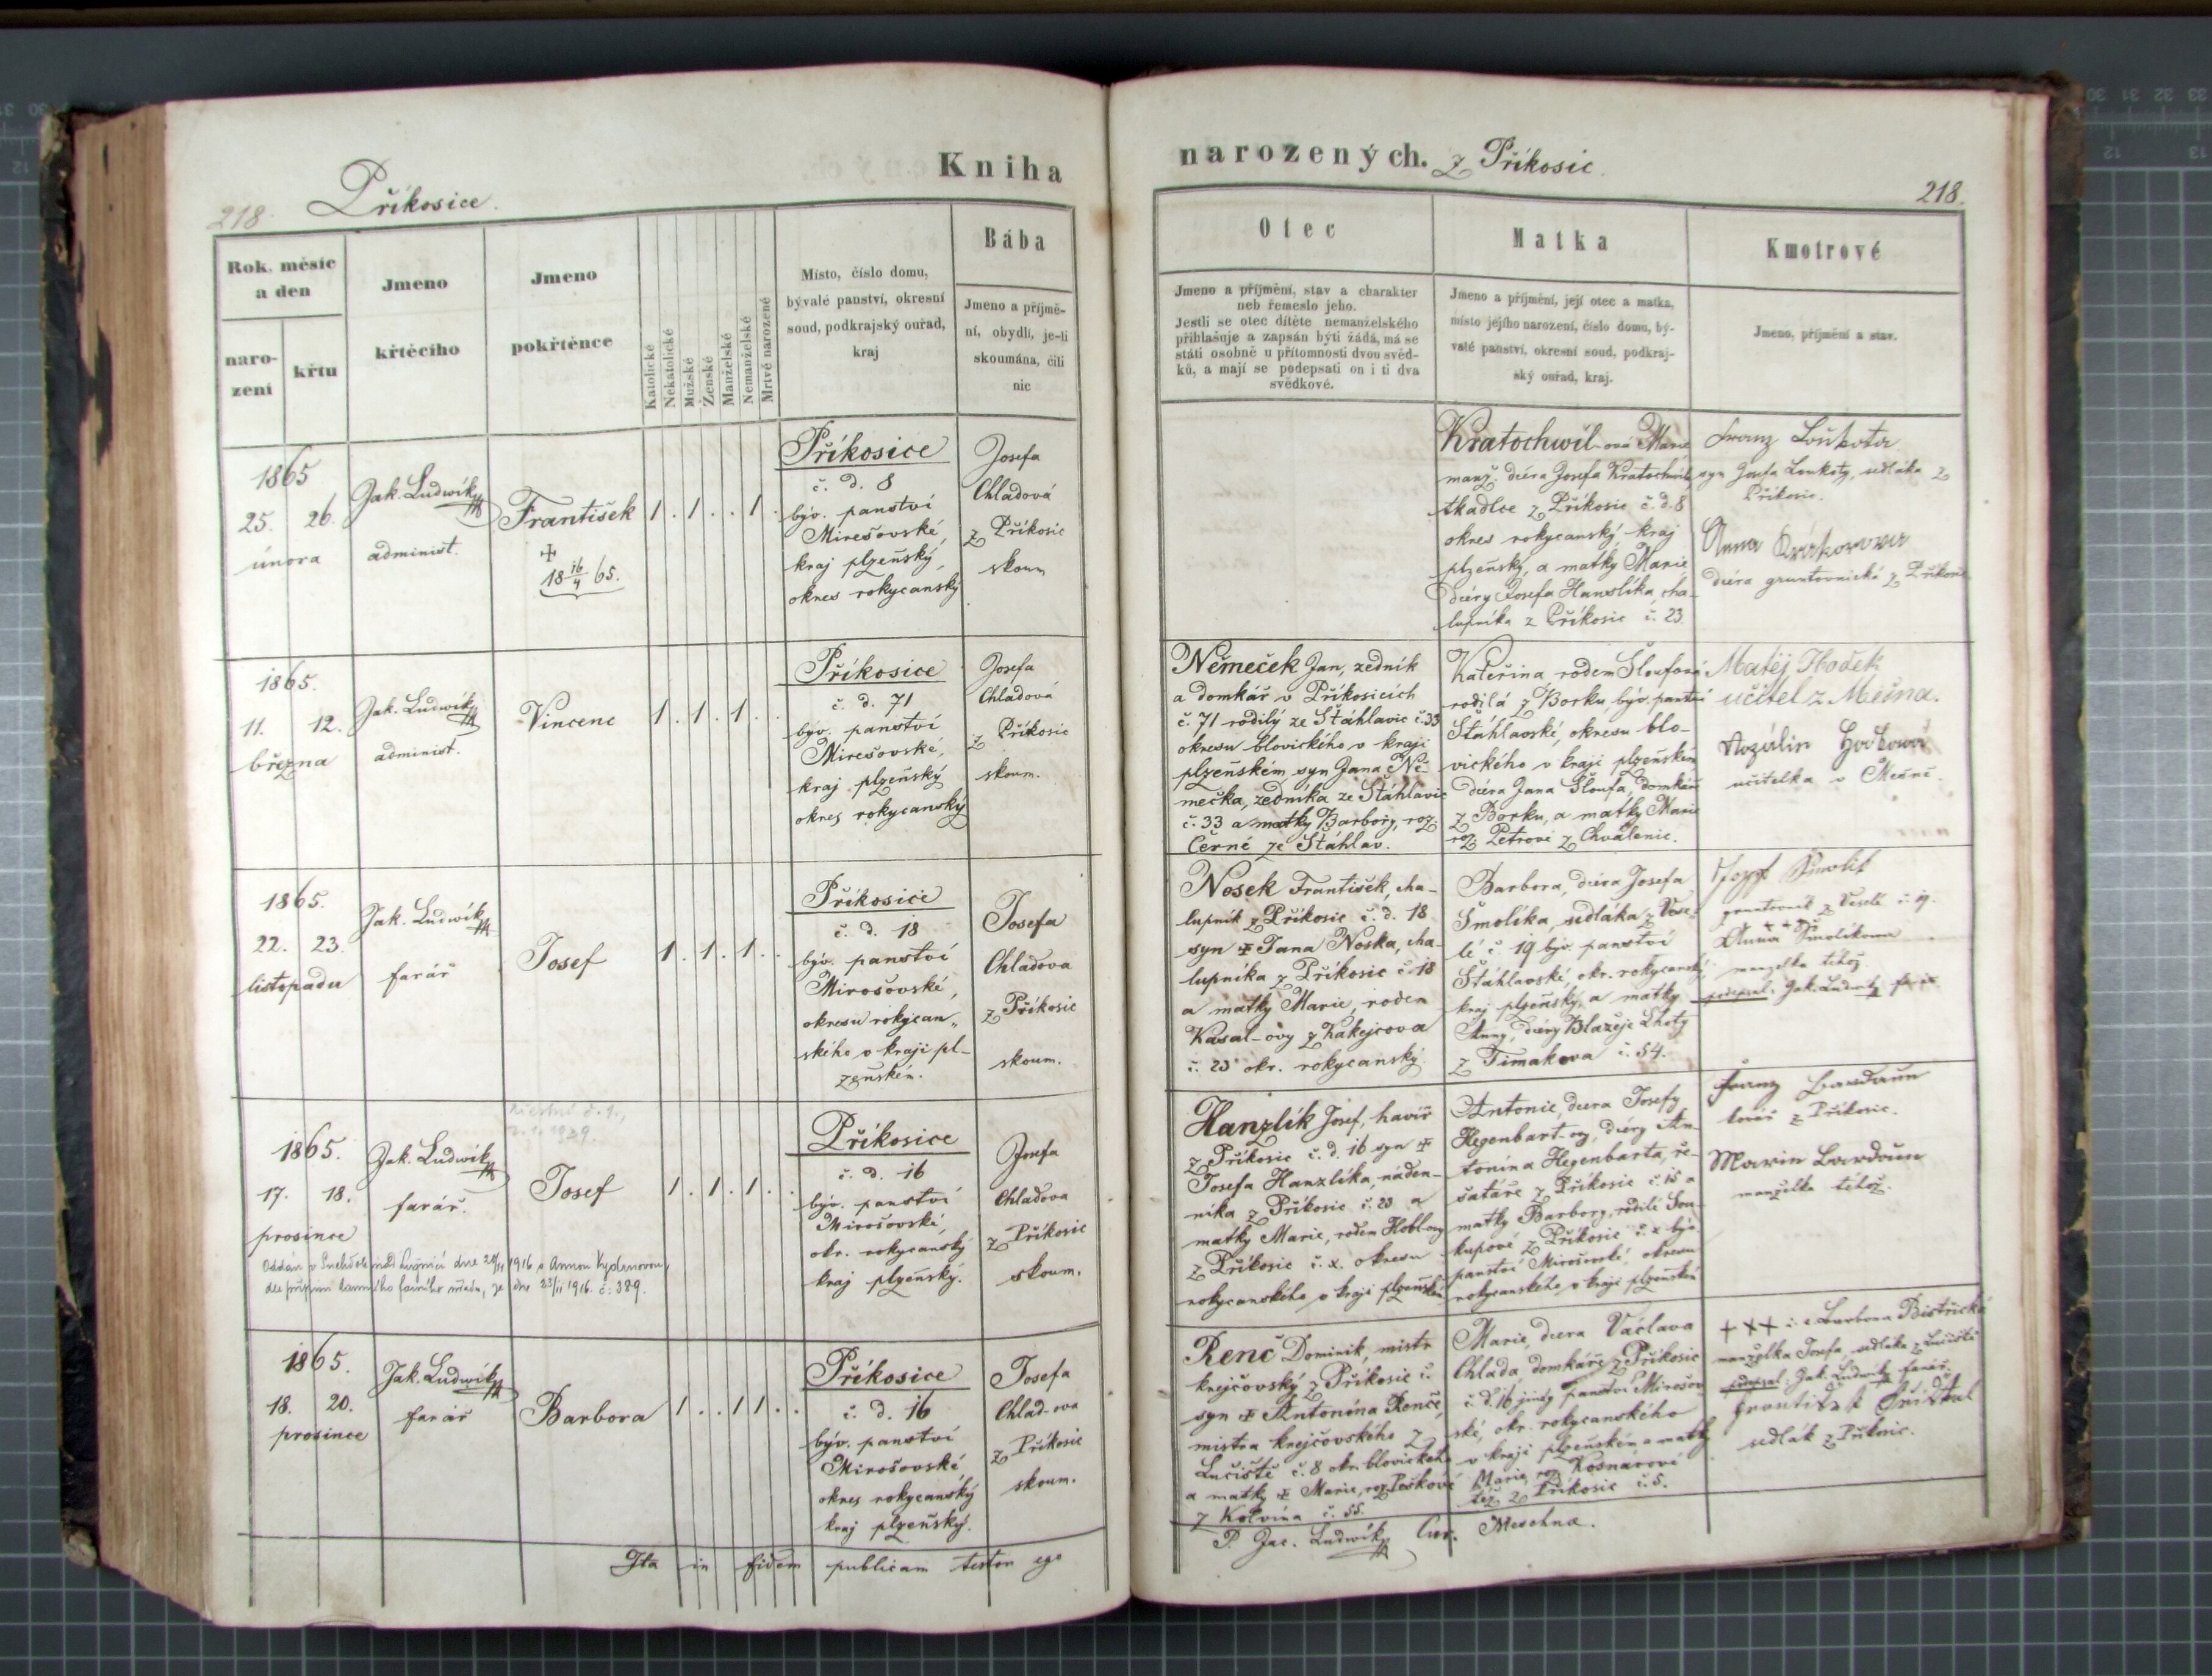 Příkosice.
218
Kniha
narozených. z Příkosic
218.
Rok, měsíc
a den
naro-
zení
křtu
Jmeno
křtěcího
Jmeno
pokřtěnce
Katolické
Nekatolické
Mužské
Ženské
Manželské
Nemanželské
Mrtvě narozené
Místo, číslo domu,
bývalé panství, okresní
soud, podkrajský ouřad,
kraj
Bába
Jmeno a příjmě-
ní, obydlí, je-li
skoumána, čili
nic
Otec
Jmeno a příjmění, stav a charakter
neb řemeslo jeho.
Jestli se otec dítěte nemanželského
přihlašuje a zapsán býti žádá, má se
státi osobně u přítomnosti dvou svěd-
ků, a mají se podepsati on i ti dva
svědkové.
Matka
Jmeno a příjmění, její otec a matka,
místo jejího narození, číslo domu, bý-
valé panství, okresní soud, podkraj-
ský ouřad, kraj.
Kmotrové
Jmeno, příjmění a stav.
1865
25. 26.
února
Jak. Ludwík
administ.
František
18 16/4 65.
1 . 1 . . 1 .
Příkosice
č. d. 8
býv. panství
Mirešovské,
kraj plzeňský,
okres rokycanský
Josefa
Chladová
z Příkosic
skoum
Kratochwil-ová Marie
manž. dcera Josefa Kratochwila
tkadlce z Příkosic č. d. 8
okres rokycanský, kraj
plzeňský, a matky Marie
dcery Josefa Hanzlíka, cha-
lupníka z Příkosic č. 23.
Franz Loukota
syn Josefa Loukoty, sedláka z
Příkosic.
Anna
dcera gruntovnická z Příkosic
1865.
11. 12.
března
Jak. Ludwík
administ.
Vincenc
1 . 1 . 1 . .
Příkosice
č. d. 71
býv. panství
Mirešovské,
kraj plzeňský
okres rokycanský
Josefa
Chladová
z Příkosic
skoum.
Němeček Jan, zedník
a domkář v Příkosicích
č. 71 rodilý ze Šťáhlavic č. 33
okresu blovického v kraji
plzeňském, syn Jana Ně-
mečka, zedníka ze Šťáhlavic
č. 33 a matky Barbory, roz.
Černé ze Šťáhlav.
Kateřina rodem Šloufová
rodilá z Borku, býv. panství
Šťáhlavské, okresu blo-
vického v kraji plzeňském
dcera Jana Šloufa, domkáře
z Borku, a matky Marie
roz. Petrové z Chválenic.
Matěj Hodek
učitel z Mešna.
učitelka v Mešně.
1865.
22. 23.
listopadu
Jak. Ludwík
farář
Josef
1 . 1 . 1 . .
Příkosice
č. d. 18
býv. panství
Mirošovské,
okresu rokycan„
ského v kraji pl-
zeňském.
Josefa
Chladova
z Příkosic
skoum.
Nosek František, cha-
lupník z Příkosic č. d. 18
syn Jana Noska, cha-
lupníka z Příkosic č. 18
a matky Marie, rodem
Kasal-ovy z Kakejcova
č. 23 okr. rokycanský
Barbora, dcera Josefa
Smolíka, sedláka z Vese-
lé č. 19 býv. panství
Šťáhlavské, okr. rokycanský,
kraj plzeňský, a matky
Anny, dcery Blažeje Lhoty
z Timakova č. 54.
Josef Smolik
gruntovník z Veselé č. 19.
+++
Anna Smolíkowa
manželka téhož
podepsal: Jak. Ludwík farář
1865.
17. 18.
prosince
Jak. Ludwík
farář.
Josef
1 . 1 . 1 . .
Příkosice
č. d. 16
býv. panství
Mirošovské,
okr. rokycanský
kraj plzeňský.
Josefa
Chladova
z Příkosic
skoum.
Hanzlík Josef, havíř
z Příkosic č. d. 16 syn
Josefa Hanzlíka, náden-
níka z Příkosic č. 23 a
matky Marie, rodem Hobl-ovy
z Příkosic č. x. okresu
rokycanského v kraji plzeňském
Antonie, dcera Josefy
Hegenbart-ovy, dcery An-
tonína Hegenbarta, ře-
šatáře z Příkosic č. 15 a
matky Barbory, rodilé Sou-
kupové z Příkosic č. x býv.
panství Mirošovské, okresu
rokycanského v kraji plzeňském
Franz Bardaun
z Příkosic.
Marin Bardaun
manželka téhož.
1865.
18. 20.
prosince
Jak. Ludwík
farář
Barbora
1 . . 1 1 . .
Příkosice
č. d. 16
býv. panství
Mirošovské
okres rokycanský
kraj plzeňský.
Josefa
Chlad-ova
z Příkosic
skoum.
Renč Dominik, mistr
krejčovský z Příkosic č.
syn Antonína Renče,
mistra krejčovského z
Lučiště č. 8 okr. blovického
a matky Marie, roz. Peškové
z Kolvína č. 55.
Marie, dcera Václava
Chlada, domkáře z Příkosic
č. d. 16 jindy panství Mirošov-
ské, okr. rokycanského
v kraji plzeňském a matky
Marie, roz. Kosnarové
též z Příkosic č. 5.
+++ Barbora Bistřická
manželka Josefa, sedláka z Lučiště
podepsal: Jak. Ludwík farář.
František
sedlák z Příkosic.
Ita in fidem publicam testor ego
P. Jac. Ludwík Cur. Meschna.